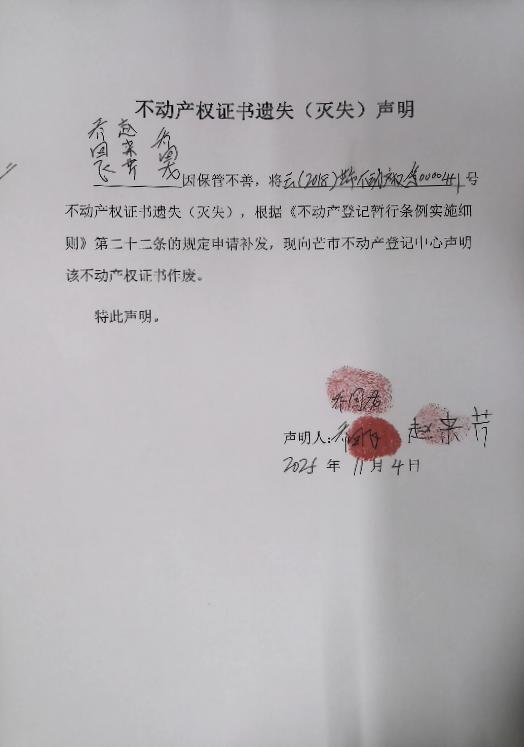 不动产权证书遗失（灭失）声明
因保管不善，将云(2018)芒市不动产权第0000441号
不动产权证书遗失（灭失），根据《不动产登记暂行条例实施细
则》第二十二条的规定申请补发，现向芒市不动产登记中心声明
该不动产权证书作废。
特此声明。
声明人：
2025年11月4日